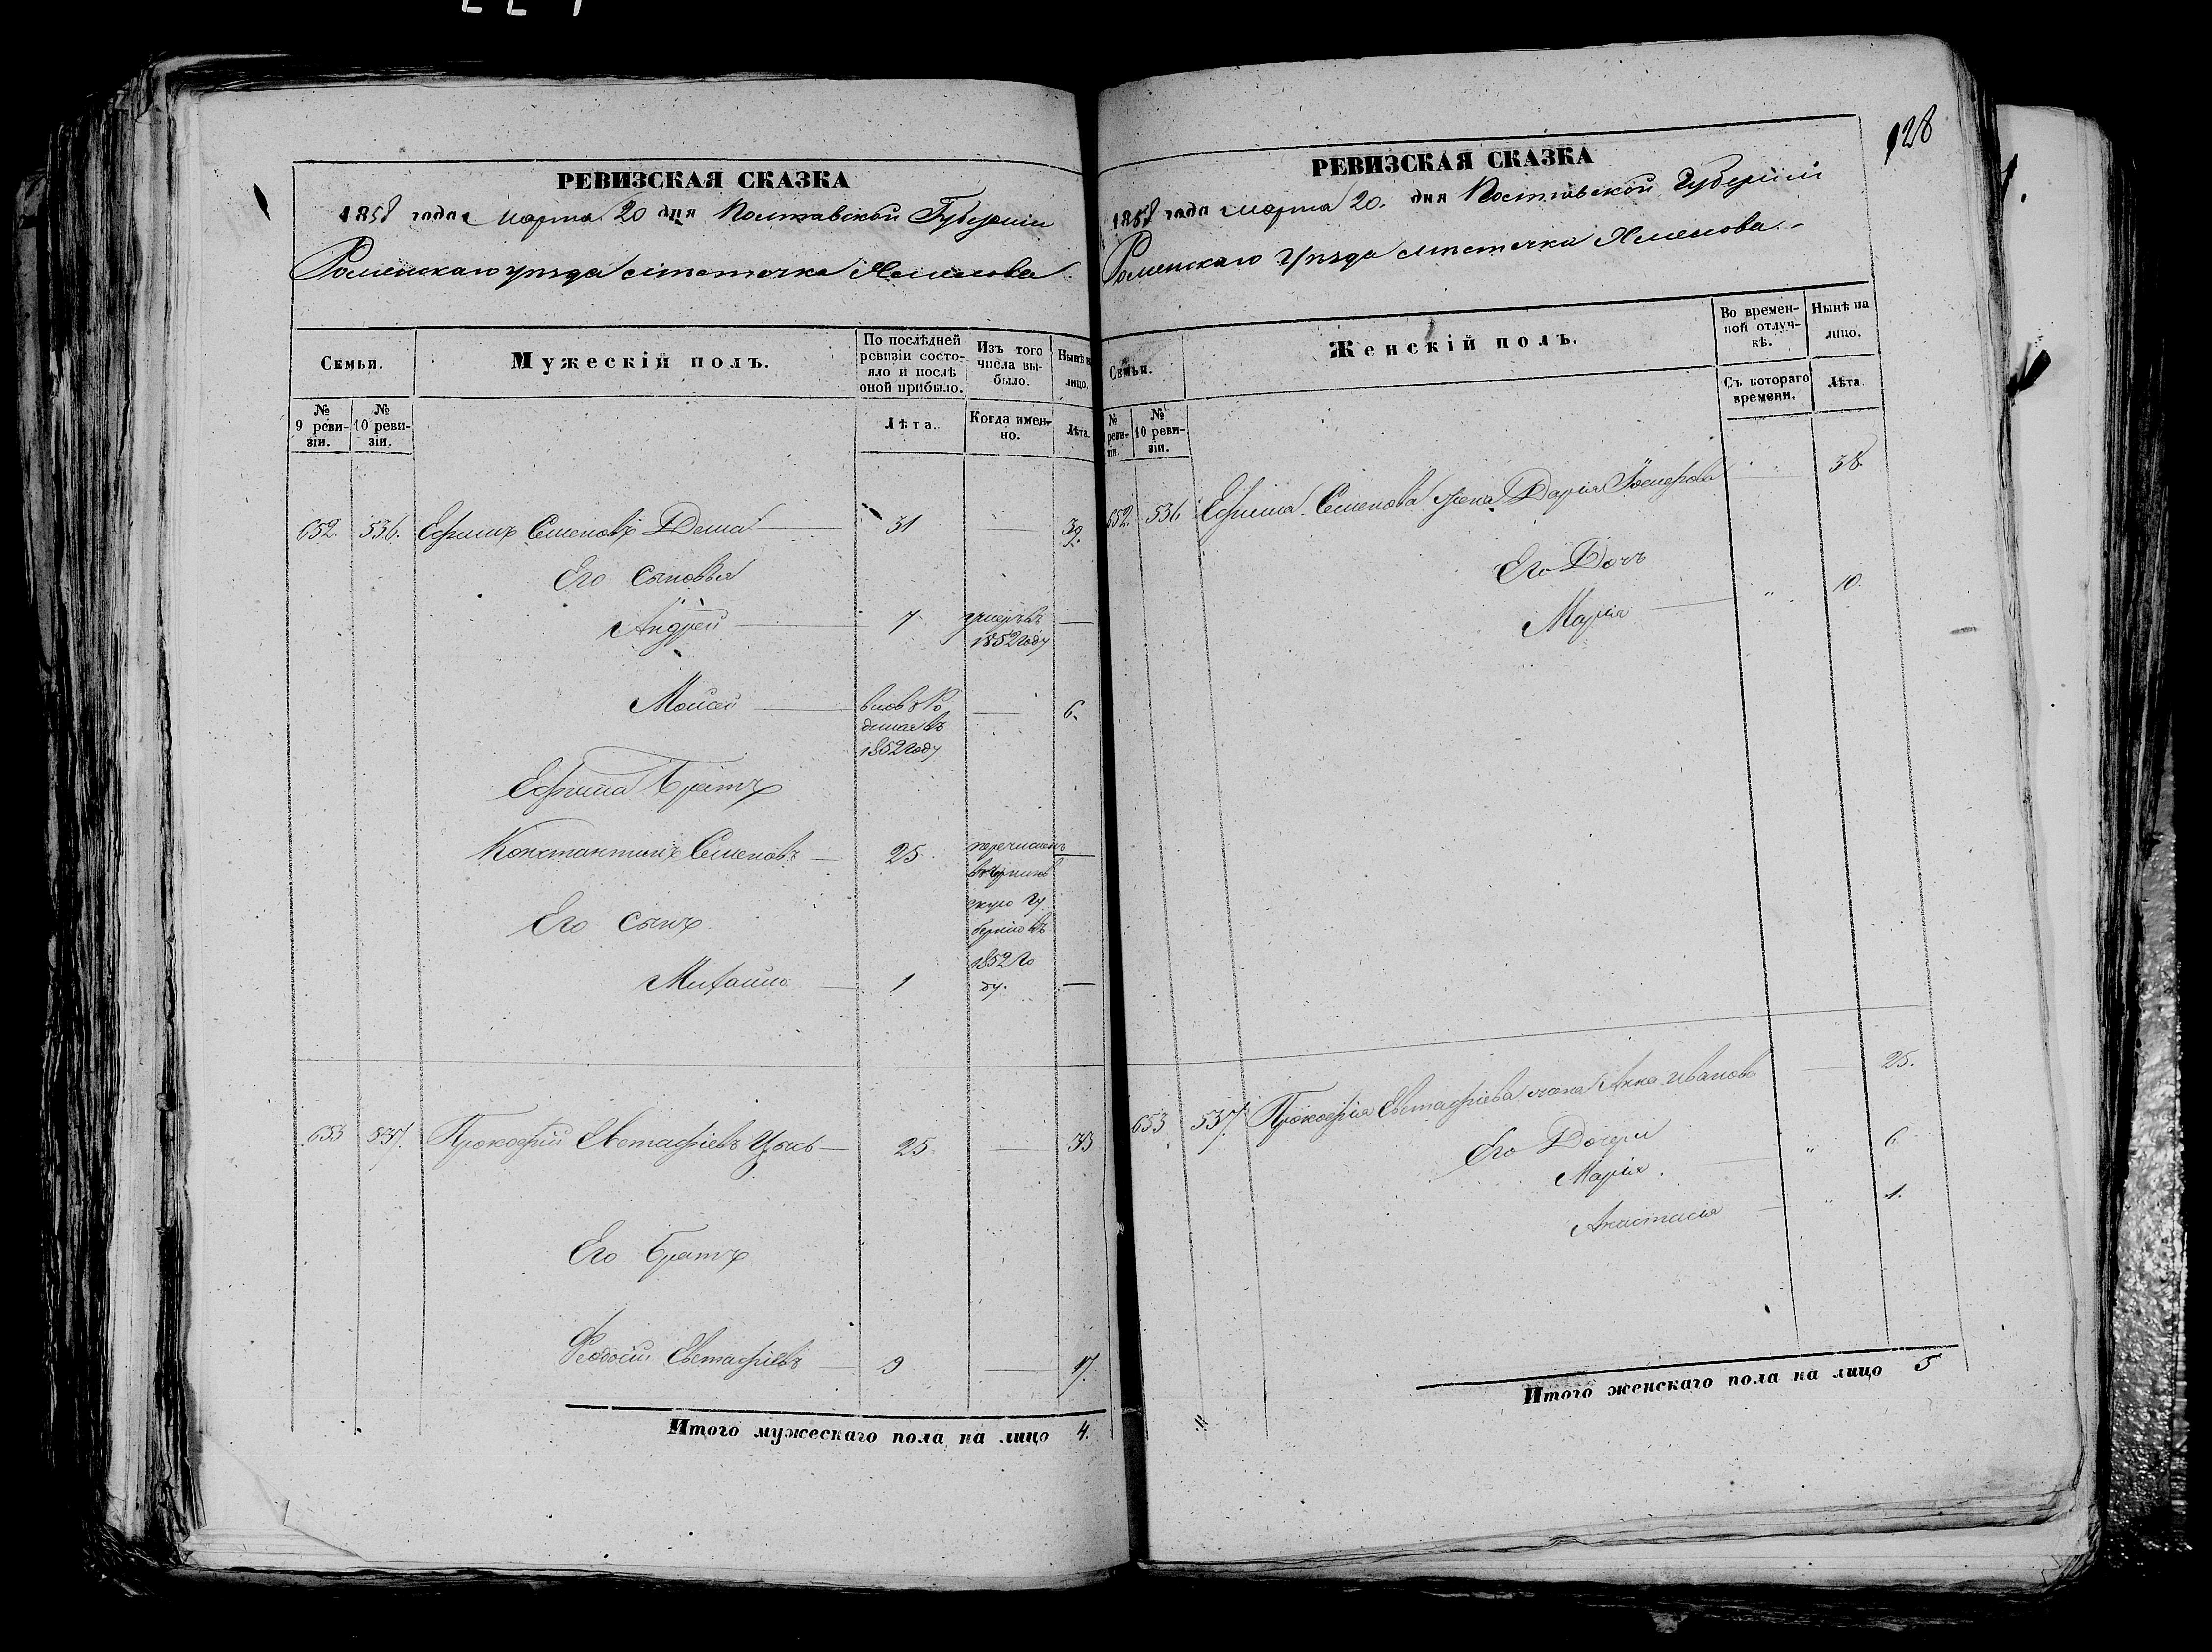 128
РЕВИЗСКАЯ СКАЗКА
1858 года марта 20 дня Полтавской Губернии
Роменскаго уѣзда мѣстечка
Семьи.
Мужескій полъ.
По послѣдней ревизіи состояло и послѣ оной прибыло.
Изъ того числа выбыло.
Нынѣ на лицо.
№ 9 ревизіи.
№ 10 ревизіи.
Лѣта.
Когда именно.
Лѣта.
652. 536. Ефимъ Семеновъ Дема 31 39.
Его сыновья
Андрей 7 умеръ въ 1852 году
Моисей вновь родился въ 1852 году 6.
Ефима Братъ
Константинъ Семеновъ 25 перечисленъ
губернію въ
1852 го
ду.
Его сынъ
Михайло 1
653 537. Прокофій Евстафіевъ 25 33
Его Братъ
Феодосій Евстафіевъ 9 17.
Итого мужескаго пола на лицо 4.
РЕВИЗСКАЯ СКАЗКА
1858 года марта 20. дня Полтавской Губерніи
Роменскаго Уѣзда мѣстечка
Семьи.
Женскій полъ.
Во временной отлучкѣ.
Нынѣ на лицо.
№ ревизіи.
№ 10 ревизіи.
Съ котораго времени.
Лѣта.
652. 536 Ефима Семенова жена Дарія 38.
Его Дочь
Марія " 10.
653 537. Прокофія Евстафіева жена Анна Иванова 25.
Его Дочери
Марія. " 6
Анастасія " 1.
Итого женскаго пола на лицо 5